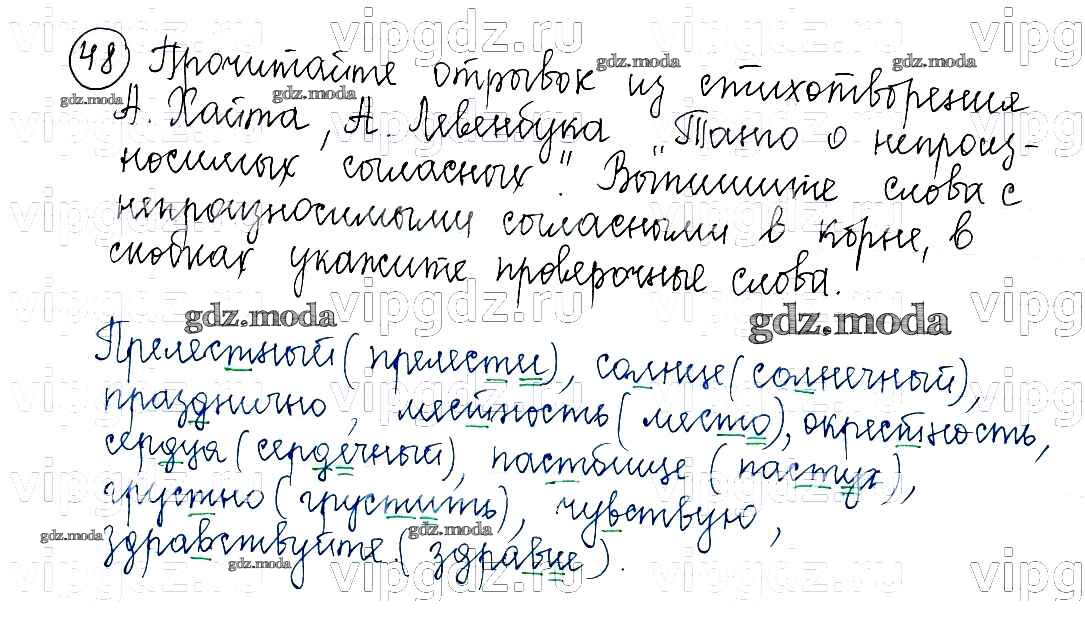 48 Прочитайте отрывок из стихотворения
А. Хайта, А. Левенбука „Танго о непроиз-
носимых согласных". Выпишите слова с
непроизносимыми согласными в корне, в
скобках укажите проверочные слова.
Прелестный (прелести), солнце (солнечный),
празднично, местность (место), окрестность,
сердца (сердечный), пастбище (пастух),
грустно (грустить), чувствую,
Здравствуйте (здравие).